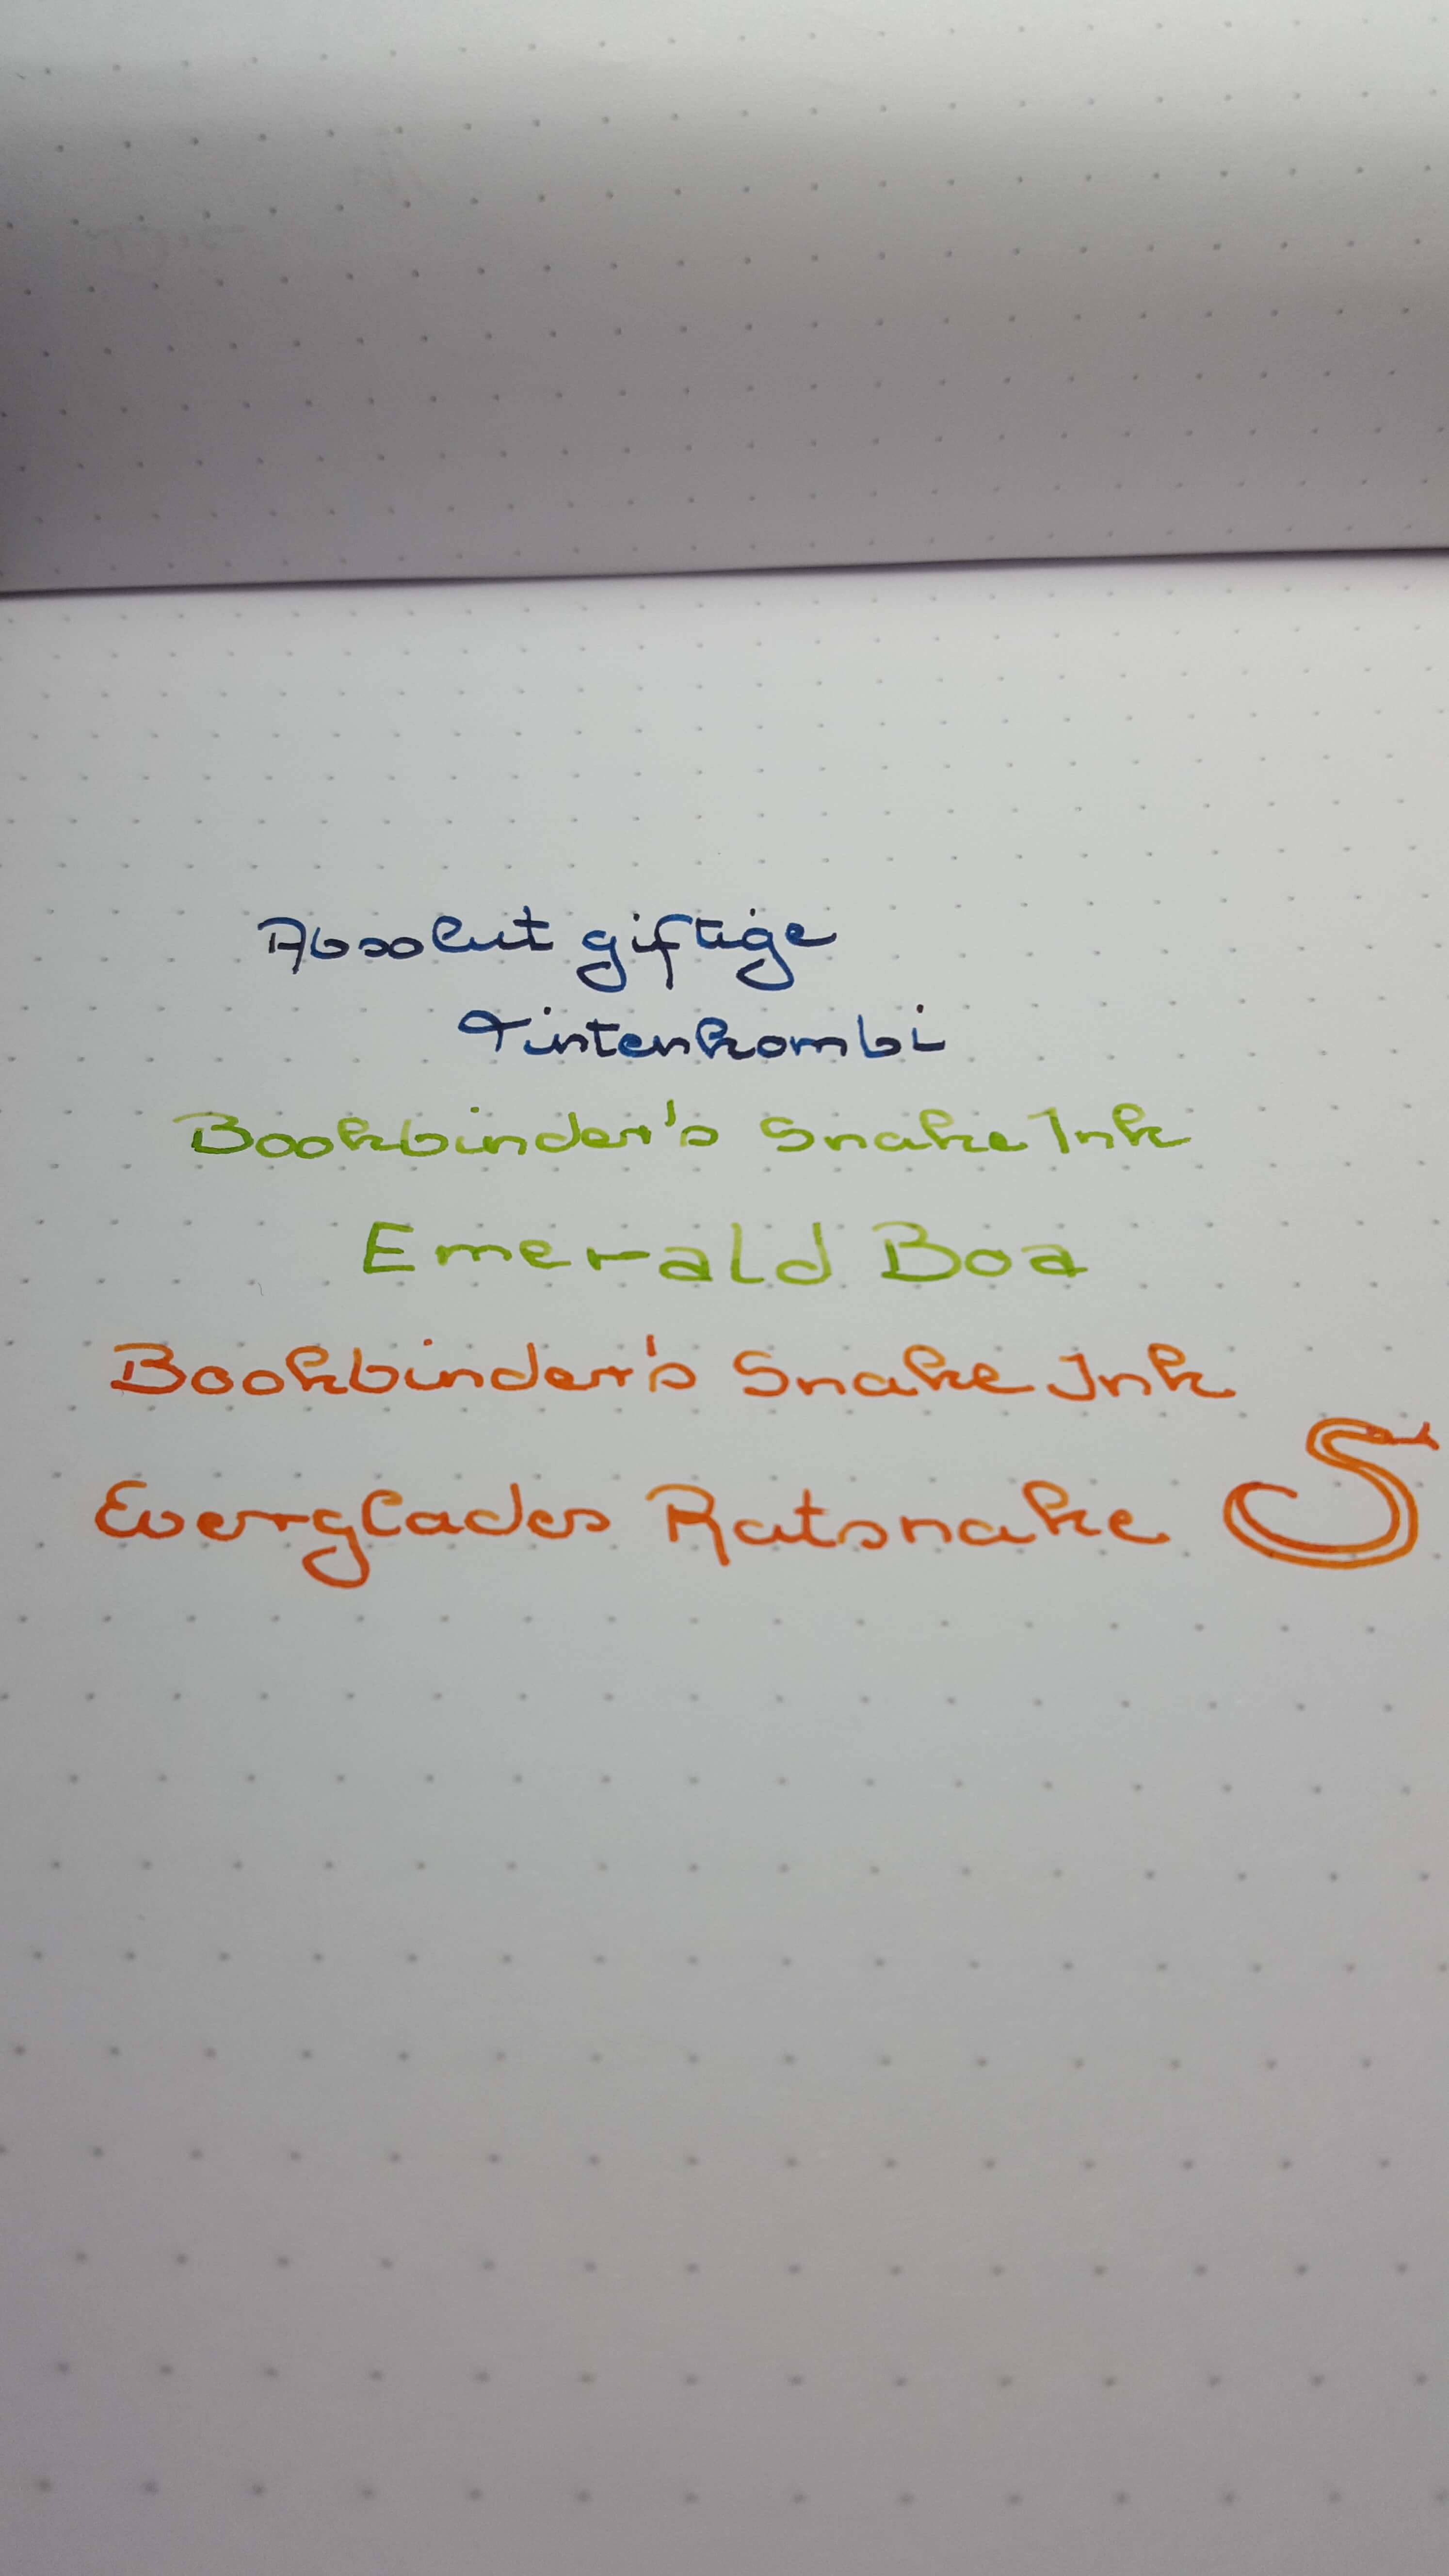 Absolut giftige
Tintenkombi
Bookbinder's Snake Ink
Emerald Boa
Bookbinder's Snake Ink
Everglades Ratsnake